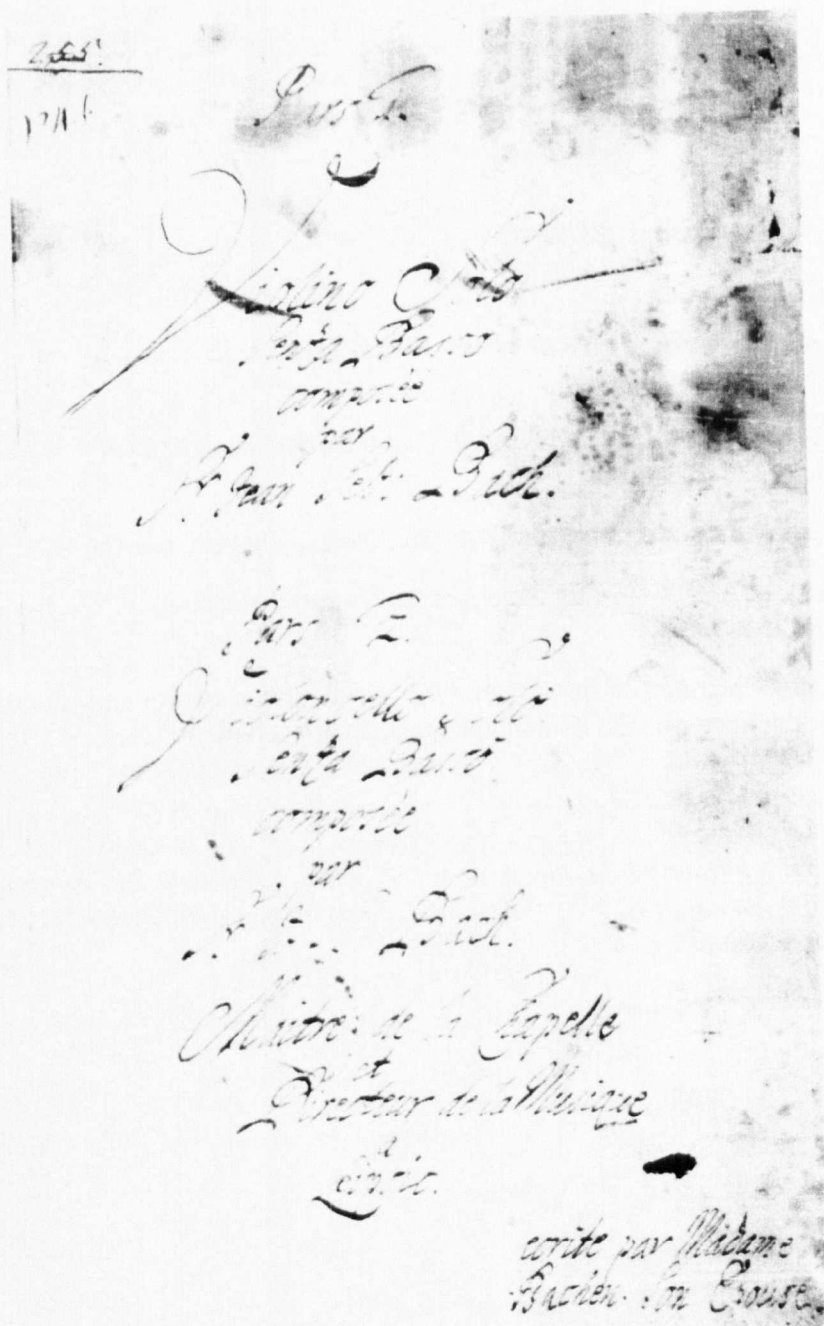 Pars 1.
Violino Solo
Senza Basso
composée
par
Sr. Jean Seb: Bach.
Pars 2.
Violoncello Solo
Senza Basso
composée
par
Sr. J. S. Bach.
Maitre de la Chapelle
et
Directeur de la Musique
a
Leipsic.
ecrite par Madame
Bachen. Son Epouse.